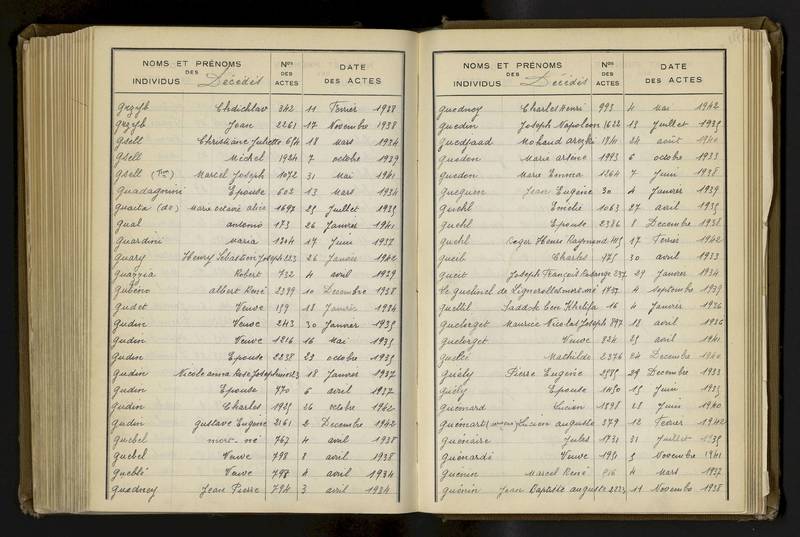 NOMS ET PRÉNOMS
DES
INDIVIDUS Décédés
Nos
DES
ACTES
DATE
DES ACTES
Grzyb Chdichlav 342 11 Février 1938
Grzyb Jean 2261 17 Novembre 1938
Gsell Christiane Juliette 654 18 mars 1934
Gsell Michel 1924 7 octobre 1939
Gsell (Vve) Marcel Joseph 1072 31 Mai 1941
Guadagnini Epouse 602 13 Mars 1934
Guaita (de) Marie octavie alice 1697 25 Juillet 1935
Gual antonio 173 26 Janvier 1941
Guardini Maria 1204 17 Juin 1937
Guary Henry Sébastien Joseph 223 26 Janvier 1942
Guazzia Robert 732 4 avril 1939
Gubeno albert René 2399 10 Décembre 1938
Gudet Veuve 159 18 Janvier 1934
Gudin Veuve 243 30 Janvier 1935
Gudin Veuve 1216 16 Mai 1935
Gudin Epouse 2238 23 octobre 1935
Gudin Nicole anna Rose Josephine 123 18 Janvier 1937
Gudin Epouse 770 6 avril 1937
Gudin Charles 1925 26 octobre 1942
Gudin Gustave Eugène 2161 2 Décembre 1942
Guebel mort-né 767 4 avril 1938
Guebel Veuve 798 8 avril 1938
Gueblé Veuve 788 4 avril 1934
Guedney Jean Pierre 794 3 avril 1934
NOMS ET PRÉNOMS
DES
INDIVIDUS Décédés
Nos
DES
ACTES
DATE
DES ACTES
Guednoy Charles Henri 993 4 Mai 1942
Guedin Joseph Napoleon 1622 13 Juillet 1935
Guedjaad Mohand arezki 1841 24 août 1940
Guedon Marie arsène 1993 6 octobre 1933
Guedon Marie Emma 1264 7 Juin 1938
Gueguen Jean Eugène 30 4 Janvier 1939
Guehl Emélie 1063 27 avril 1935
Guehl Epouse 2386 8 Décembre 1938
Guehl Roger Henri Raymond 405 17 Février 1942
Gueib Charles 975 30 avril 1933
Gueit Joseph François 237 29 Janvier 1934
Le guelinel de Lignerolles mort né 1757 4 septembre 1939
Guellil Saddok ben Khelifa 16 4 Janvier 1936
Guelorget Maurice Nicolas Joseph 897 18 avril 1936
Guelorget Veuve 824 25 avril 1941
Mathilde 2376 24 Décembre 1940
Guély Pierre Eugène 2585 29 Décembre 1933
Guély Epouse 1450 15 Juin 1935
Guémard Lucien 1398 28 Juin 1940
Lucien auguste 379 12 Février 1942
Guénaire Jules 1731 31 Juillet 1935
Guénardi Veuve 1991 5 Novembre 1941
Guénin Marcel René 516 4 Mars 1937
Guénin Jean Baptiste auguste 2223 11 Novembre 1938